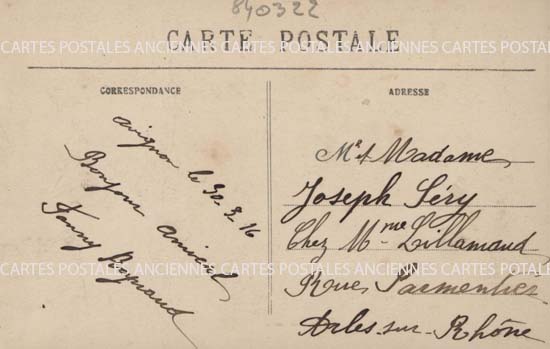 840322
CARTE POSTALE
CARTES POSTALES ANCIENNES CARTES POSTALES ANCIENNES CARTES POSTALES
CORRESPONDANCE
avignon le 30-3-16
Bonjour amical
Fanny Reynaud
ADRESSE
Mr et Madame
Joseph Séry
Chez Mme Lillamand
Rue Parmentier
Arles-sur-Rhône
CARTES POSTALES ANCIENNES CARTES POSTALES ANCIENNES CARTES POSTALES